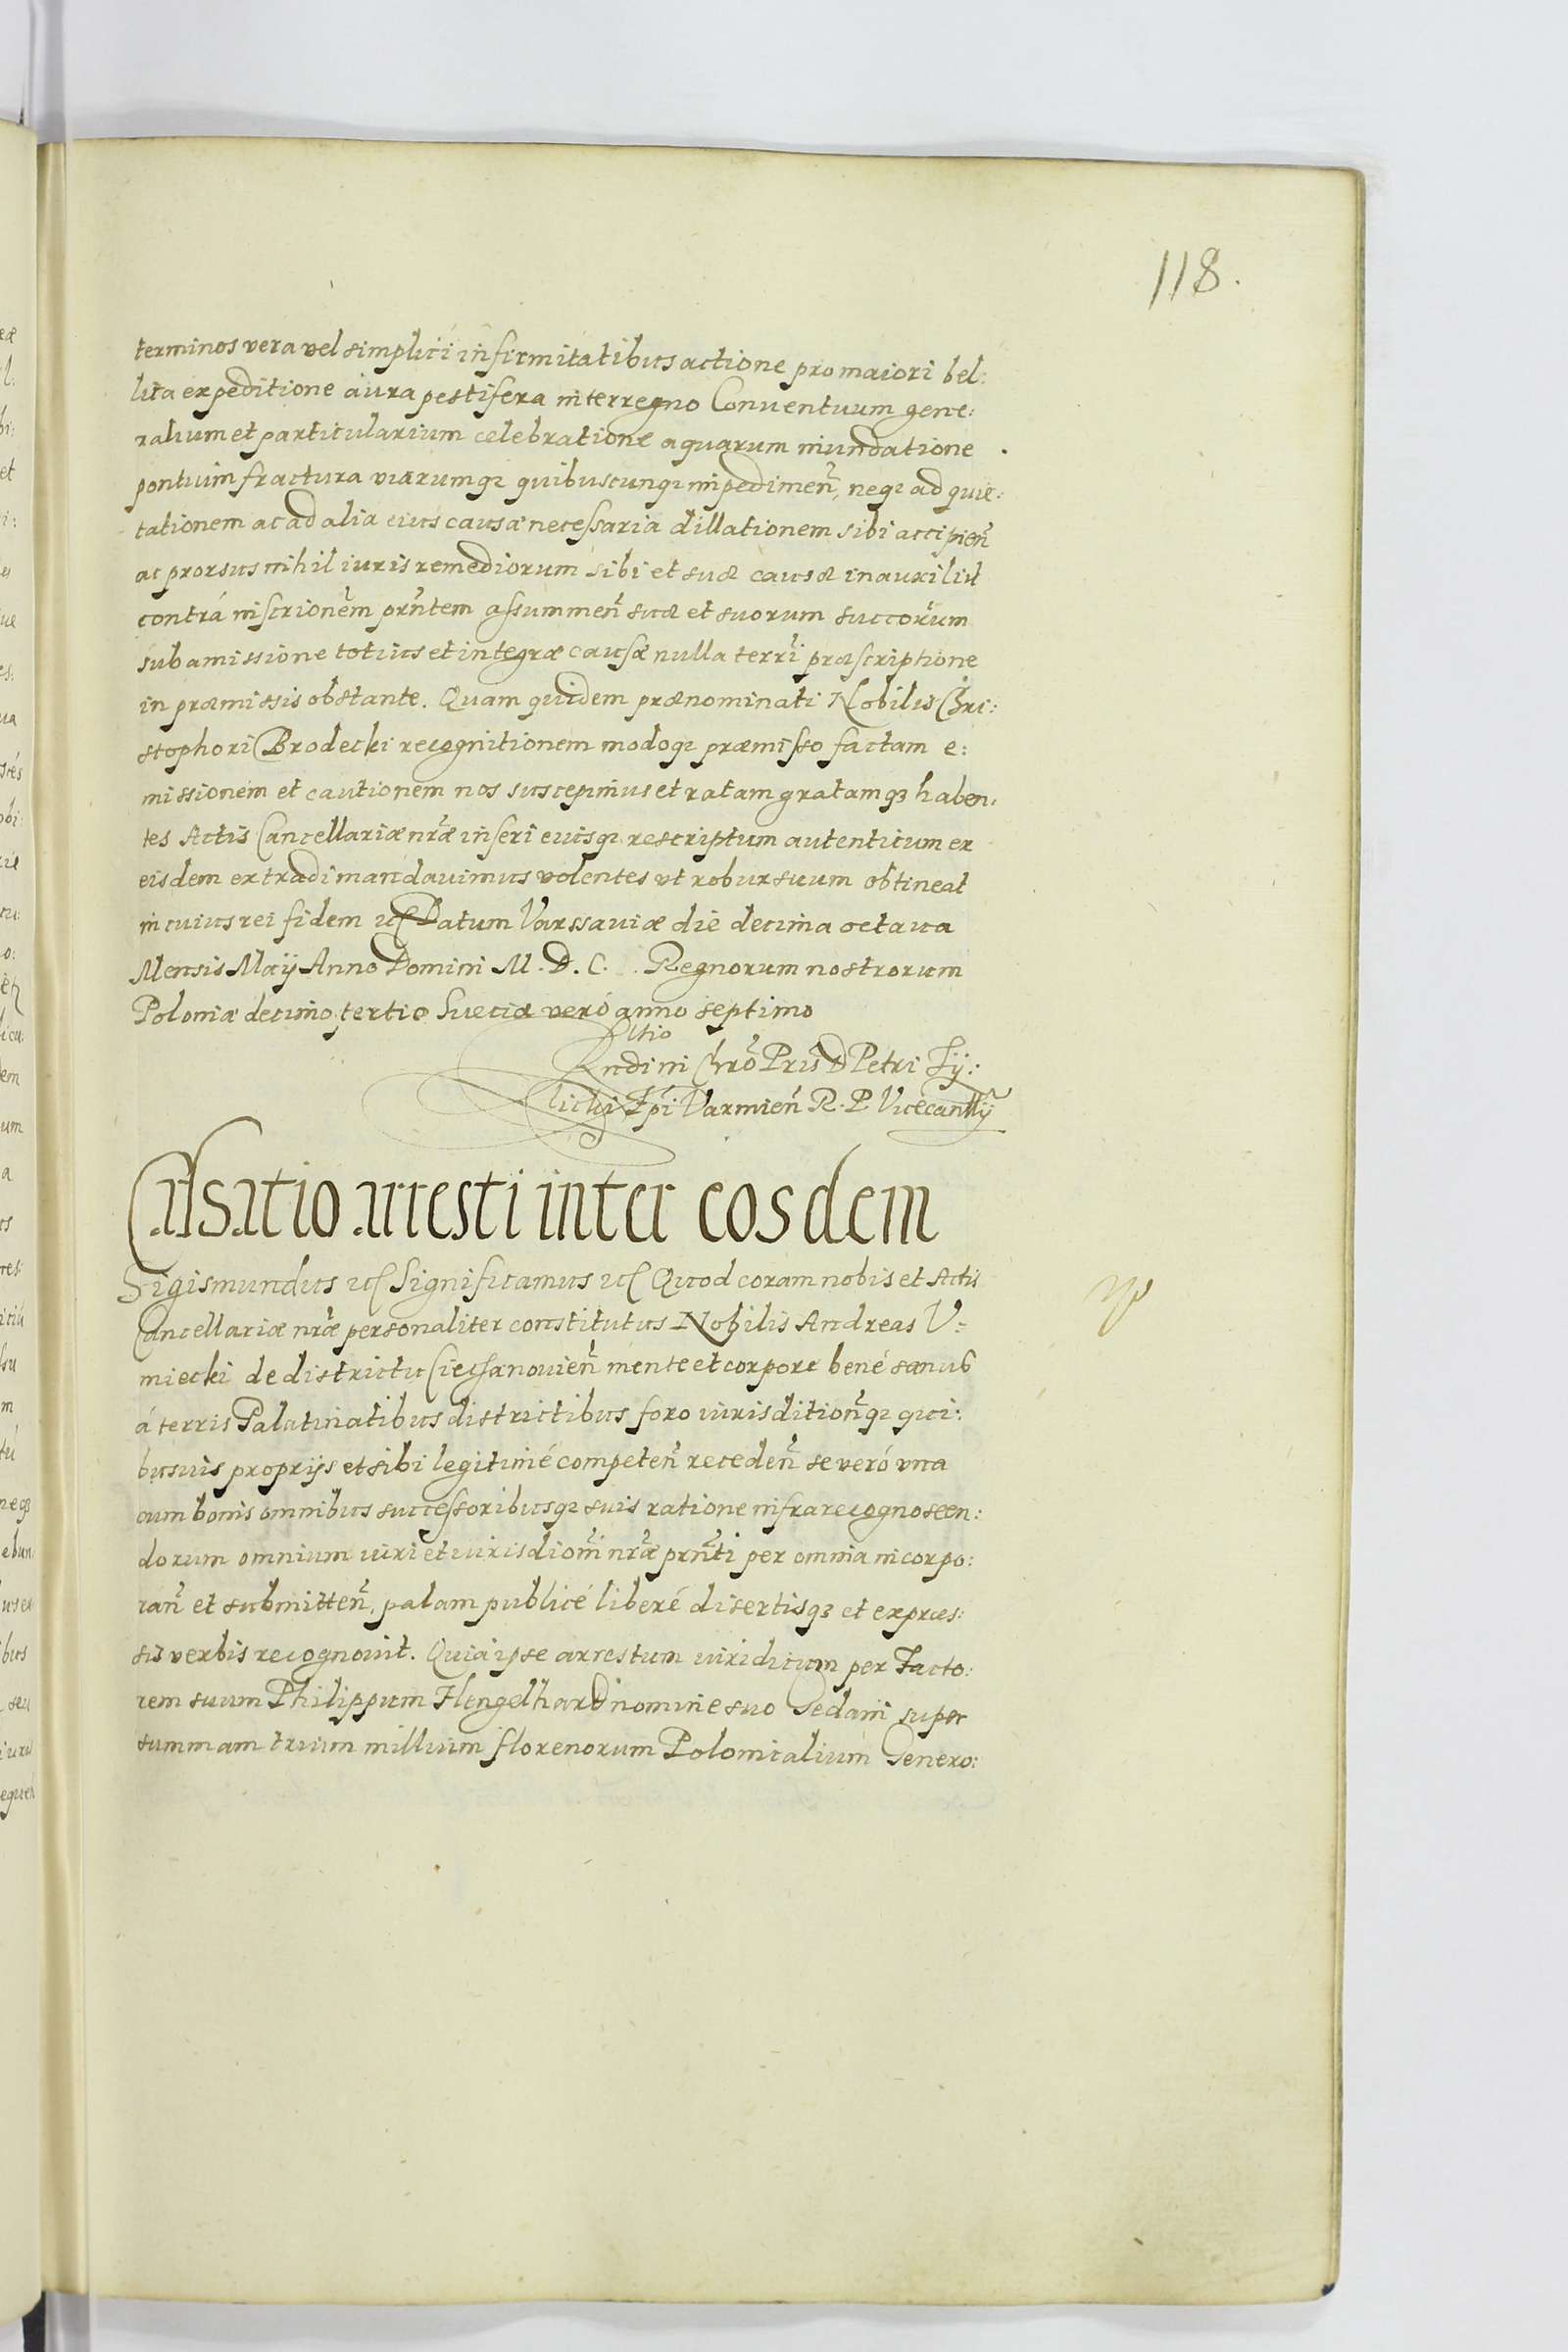 118.
terminos vera vel simplici infirmitatibus actione pro maiori bel:
lica expeditione aura pestifera interregno Conuentuum gene:
ralium et particularium celebratione aquarum inundatione
pontium fractura viarumq; quibuscunq; impedimen̄, neq; ad quie:
tationem ac ad alia eius causæ necessaria dillationem sibi accipien̄
ac prorsus nihil iuris remediorum sibi et suæ causæ in auxiliū
contrá inscrionēm prn̄tem assummen̄ suæ et suorum succorūm
sub amissione totius et integræ causæ nulla terrī præscriptione
in præmissis obstante. Quam quidem prænominati Nobilis Chri:
stophori Brodecki recognitionem modoq; præmisso factam e:
missionem et cautionem nos suscepimus et ratam gratamq; haben:
tes Actis Cancellariæ nrǣ inseri eiusq; rescriptum autenticum ex
eisdem extradi mandauimus volentes vt robur suum obtineat
in cuius rei fidem etc Datum Varssauiæ die decima octaua
Mensis Maij Anno Domini M. D. C. Regnorum nostrorum
Poloniæ decimo tertio Sueciæ veró anno septimo
Rltio
Rndi in Chrō Pris D Petri Ty:
licki Epi Varmien̄ R. P. Vicecanllij
Cassatio arresti inter eosdem
Sigismundus etc Significamus etc Quod coram nobis et Actis
Cancellariæ nrǣ personaliter constitutus Nobilis Andreas V:
miecki de districtu Ciechanouien̄ mente et corpore bené sanus
á terris Palatinatibus districtibus foro iurisdition̄q; qui:
busuis proprijs et sibi legitimé competen̄ receden̄ se veró vna
cum bonis omnibus successoribusq; suis ratione infrarecognoscen:
dorum omnium iuri et iurisdiom̄i nrǣ prn̄ti per omnia incorpo:
ran̄ et submitten̄, palam publicé liberé disertisq; et expræs:
sis verbis recognouit. Quia ipse arrestum iuridicum per Facto:
rem suum Philippum Hengelhard nomine suo Gedani super
summam trium millium florenorum Polonicalium Genero: